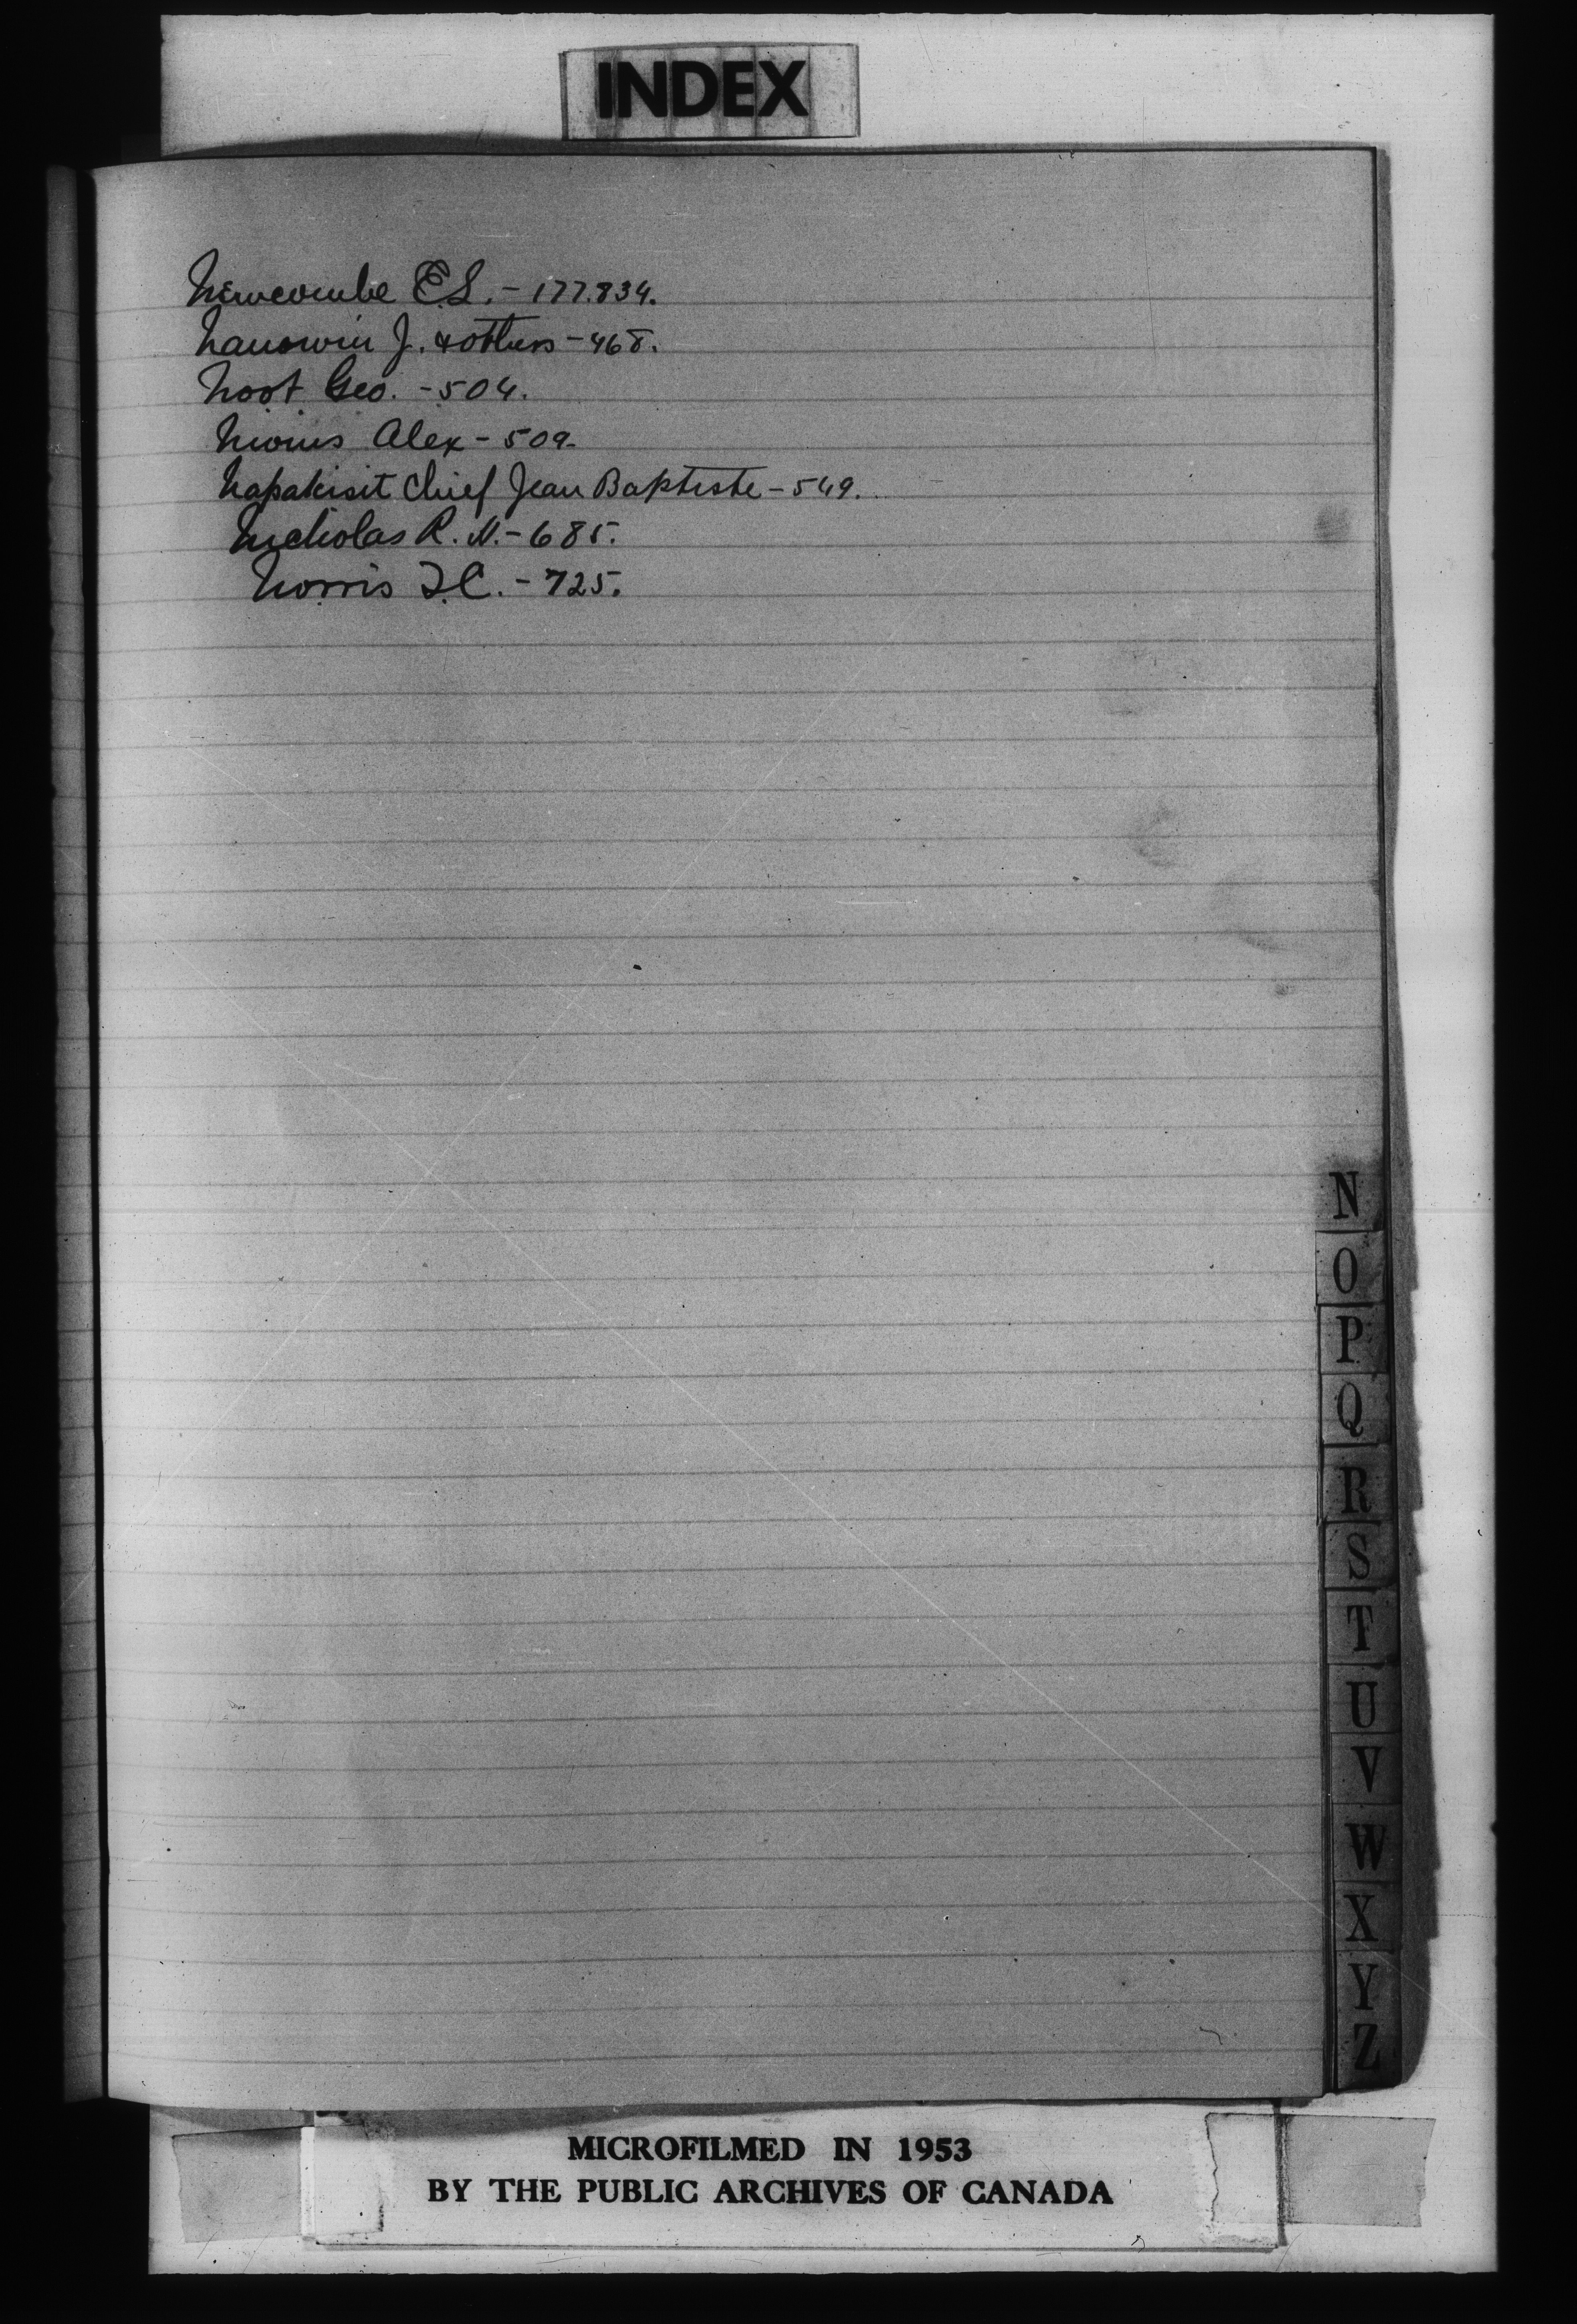 INDEX
Newcombe E.L. - 177.834.
Nanowin J. & others - 468.
Noot Geo. - 504.
Alex - 509.
Napakisit Chief Jean Baptiste - 549.
Nicholas R. N. - 685.
Norris T.C. - 725.
N
O
P
Q
R
S
T
U
V
W
X
Y
Z
MICROFILMED IN 1953
BY THE PUBLIC ARCHIVES OF CANADA